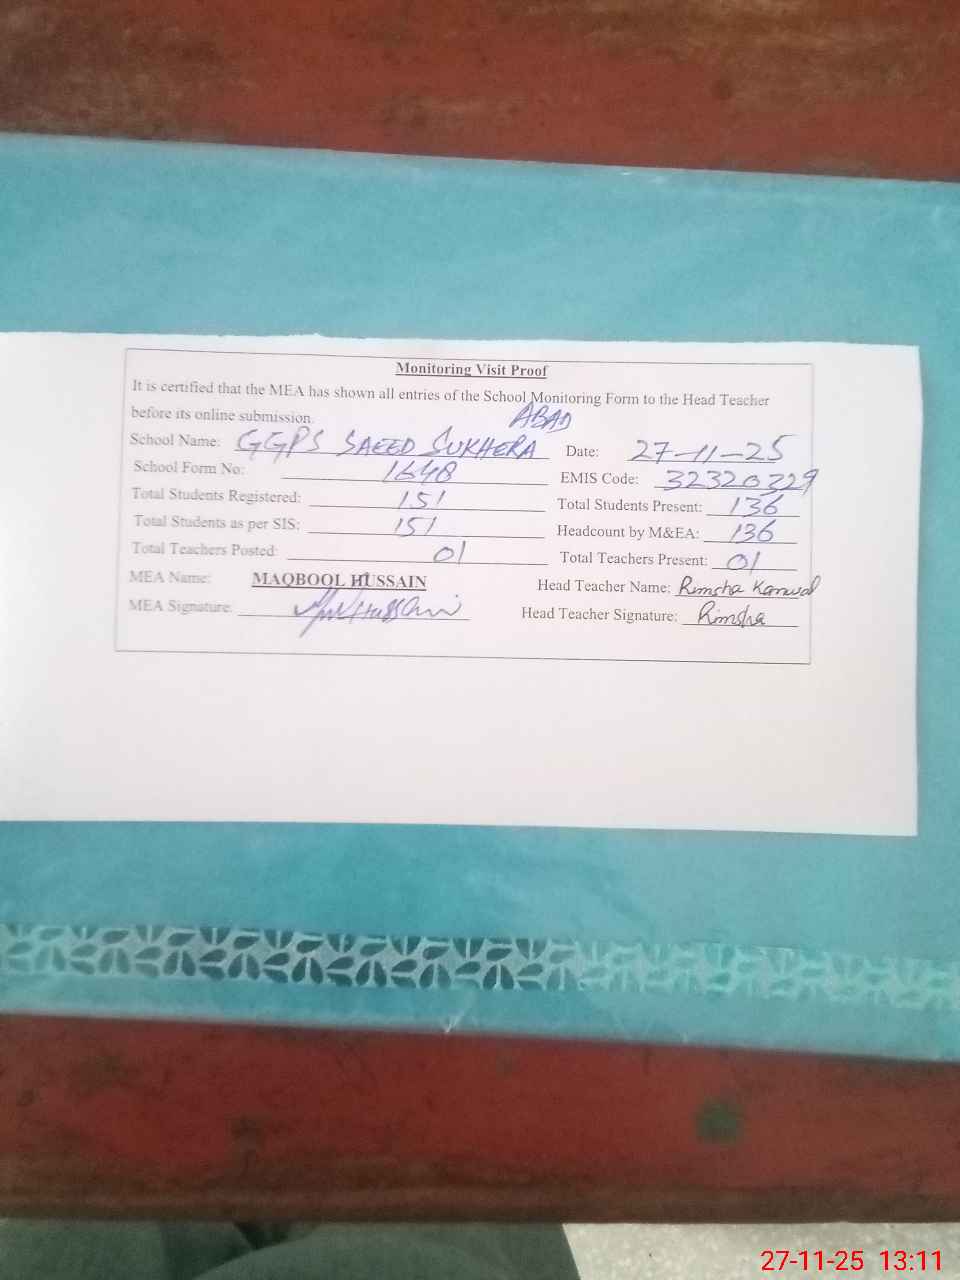 Monitoring Visit Proof
It is certified that the MEA has shown all entries of the School Monitoring Form to the Head Teacher
before its online submission.
ABAD
School Name: GGPS SAEED SUKHERA Date: 27-11-25
School Form No: 1648 EMIS Code: 32320329
Total Students Registered: 151 Total Students Present: 136
Total Students as per SIS: 151 Headcount by M&EA: 136
Total Teachers Posted: 01 Total Teachers Present: 01
MEA Name: MAQBOOL HUSSAIN Head Teacher Name: Rimsha Kanwal
MEA Signature: Head Teacher Signature: Rimsha
27-11-25 13:11